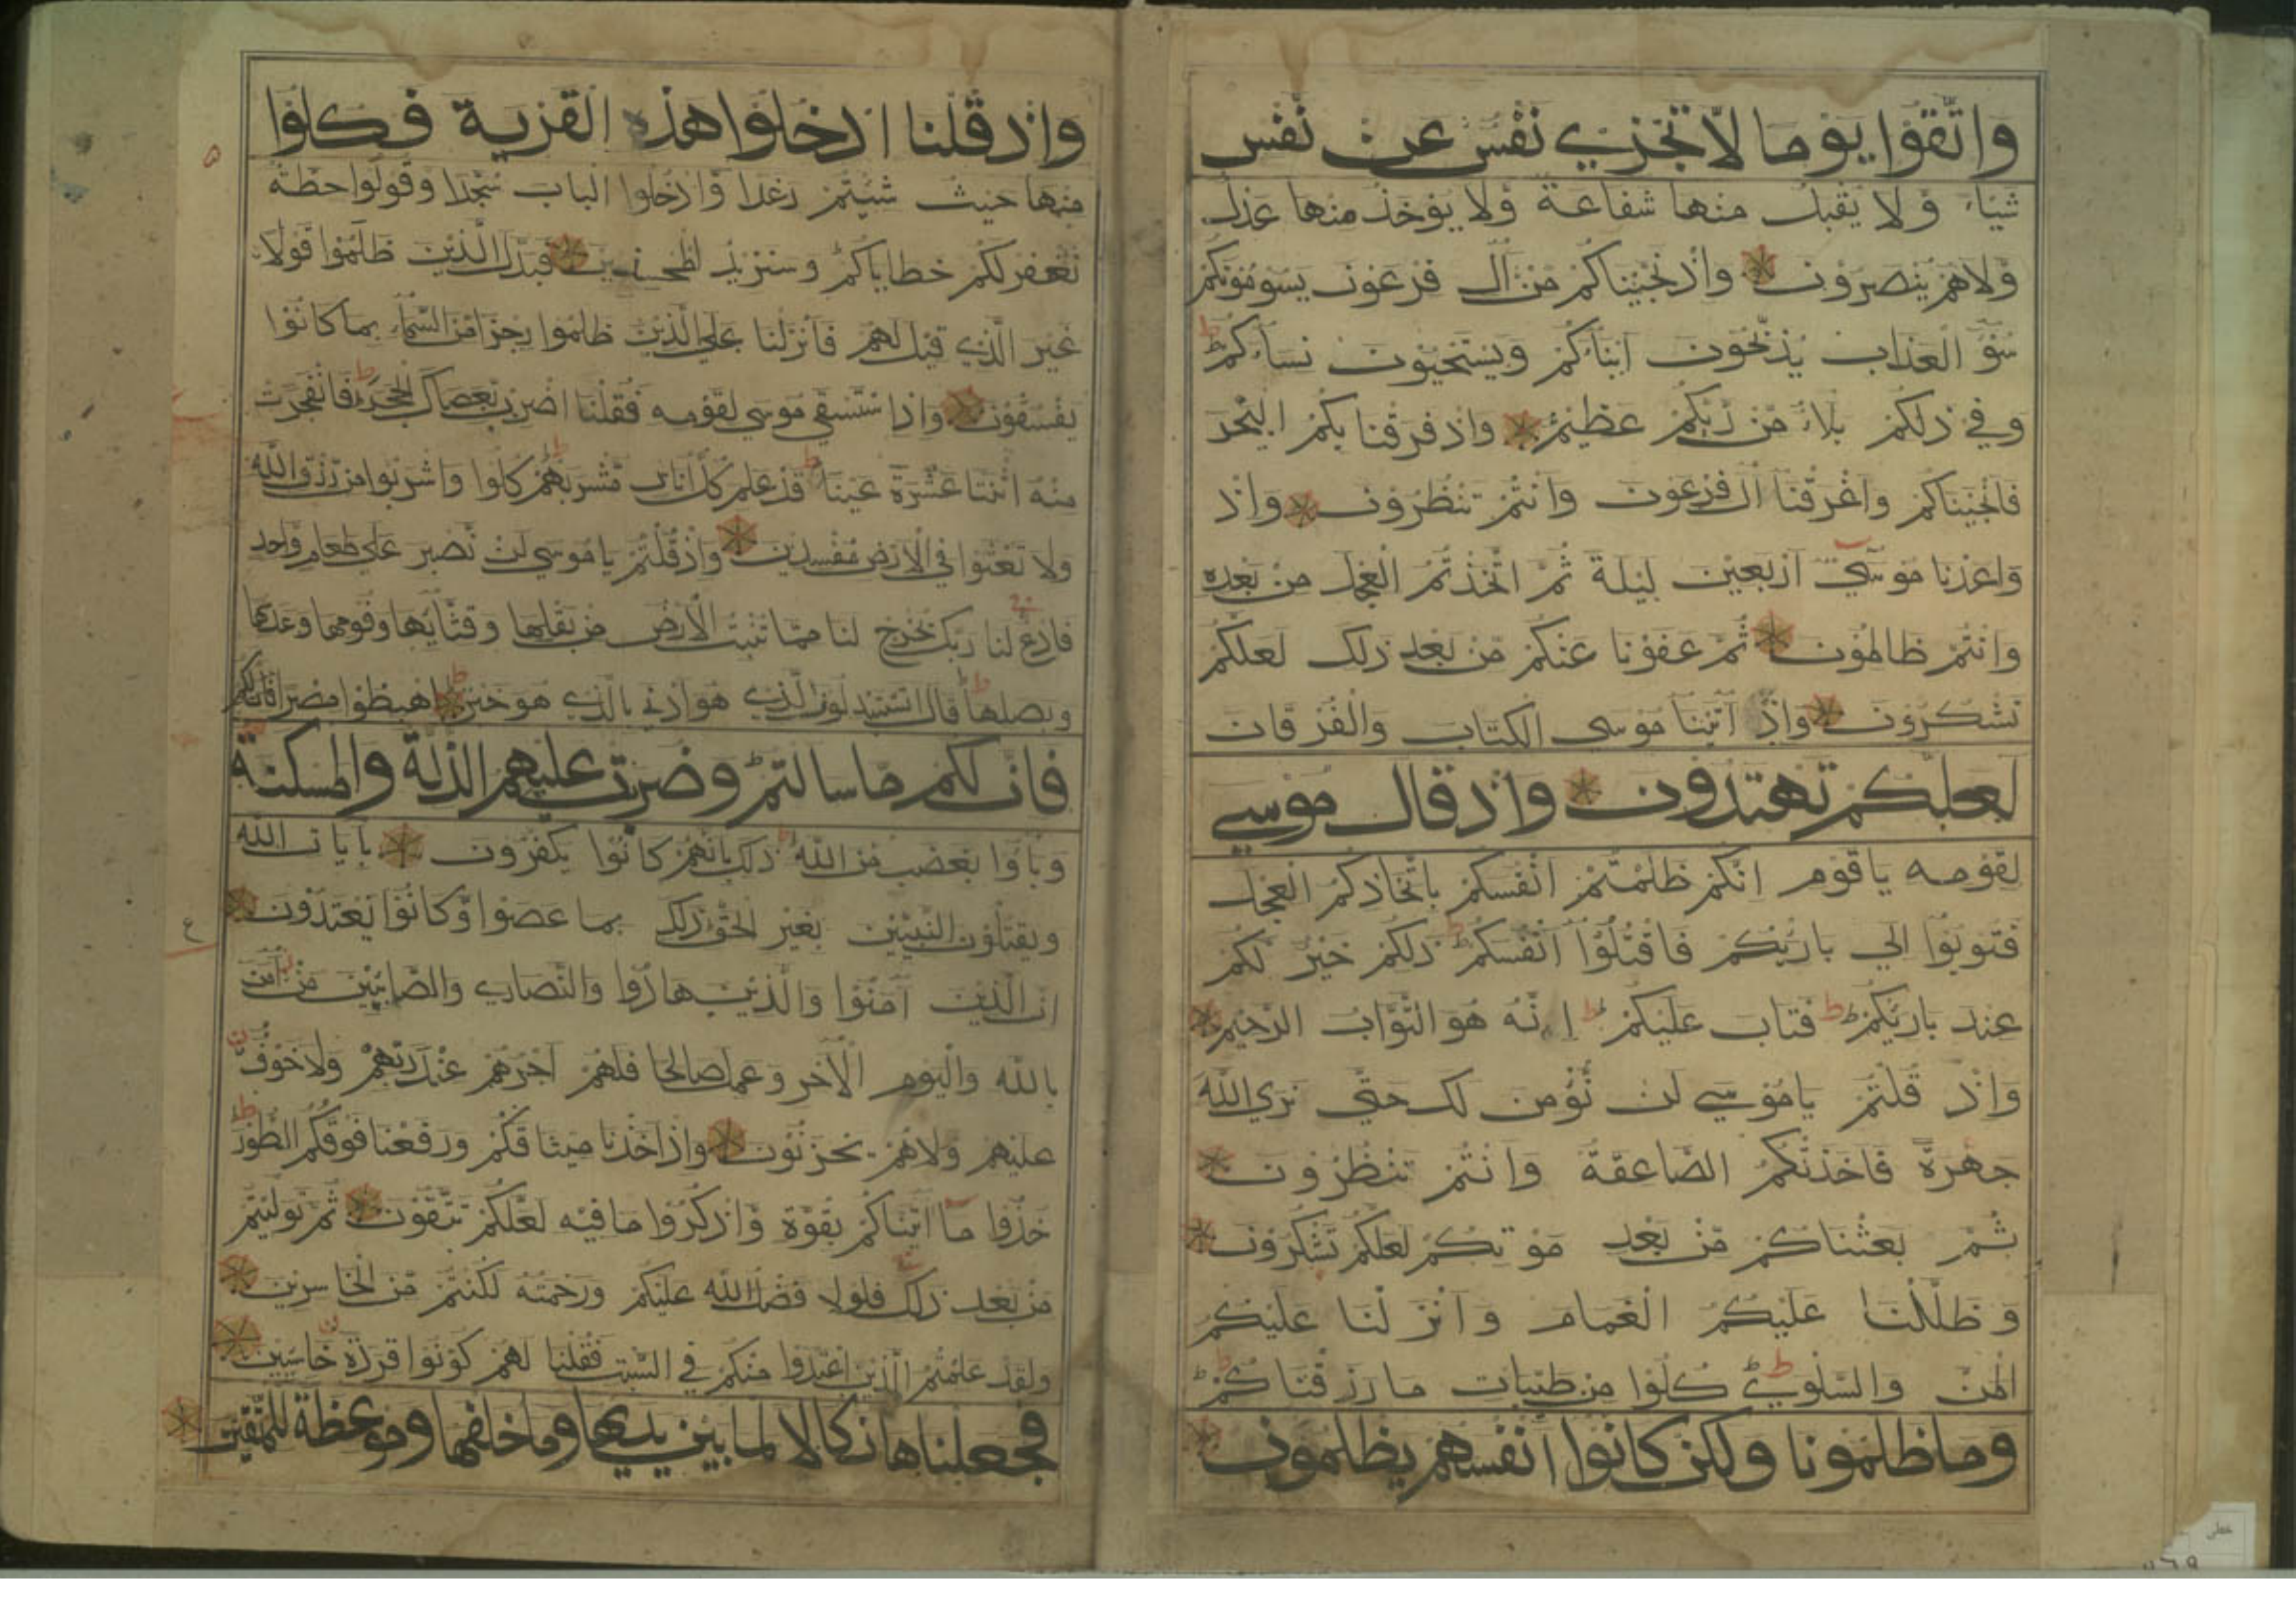 واتقوا يوما لا تجزي نفس عن نفس
شيئا ولا يقبل منها شفاعة ولا يؤخذ منها عدل
ولاهم ينصرون واذ نجيناكم من آل فرعون يسومونكم
سوء العذاب يذبحون ابناءكم ويستحيون نساءكم ط
وفي ذلكم بلاء من ربكم عظيم واذ فرقنا بكم البحر
فانجيناكم واغرقنا آل فرعون وانتم تنظرون واذ
واعدنا موسى اربعين ليلة ثم اتخذتم العجل من بعده
وانتم ظالمون ثم عفونا عنكم من بعد ذلك لعلكم
تشكرون واذ آتينا موسى الكتاب والفرقان
لعلكم تهتدون واذ قال موسى
لقومه ياقوم انكم ظلمتم انفسكم باتخاذكم العجل
فتوبوا الي بارئكم فاقتلوا انفسكم ط ذلكم خير لكم
عند بارئكم ط فتاب عليكم ط انه هو التواب الرحيم
واذ قلتم ياموسي لن نؤمن لك حتي نري الله
جهرة فاخذتكم الصاعقة وانتم تنظرون
ثم بعثناكم من بعد موتكم لعلكم تشكرون
وظللنا عليكم الغمام وانزلنا عليكم
المن والسلوي ط كلوا من طيبات ما رزقناكم ط
وما ظلمونا ولكن كانوا انفسهم يظلمون
واذ قلنا ادخلوا هذه القرية فكلوا
۵
منها حيث شئتم رغدا وادخلوا الباب سجدا وقولوا حطة
نغفر لكم خطاياكم وسنزيد المحسنين فبدل الذين ظلموا قولا
غير الذي قيل لهم فانزلنا علي الذين ظلموا رجزا من السماء بما كانوا
يفسقون واذا ستسقي موسي لقومه فقلنا اضرب بعصاك الحجر ط فانفجرت
منه اثنتا عشرة عينا ط قد علم كل اناس مشربهم ط كلوا واشربوا من رزق الله
ولا تعثوا في الارض مفسدين واذ قلتم ياموسي لن نصبر علي طعام واحد
فادع لنا ربك يخرج لنا مما تنبت الارض من بقلها وقثائها وفومها وعدسها
وبصلها ط قال اتستبدلون الذي هو ادني بالذي هو خير ط اهبطوا مصرا فان لكم
فان لكم ما سالتم ط وضربت عليهم الذلة والمسكنة
وباؤا بغضب من الله ط ذلك بانهم كانوا يكفرون بايات الله
ويقتلون النبيين بغير الحق ذلك بما عصوا وكانوا يعتدون
ع
ان الذين آمنوا والذين هادوا والنصاري والصابئين من آمن
بالله واليوم الآخر وعمل صالحا فلهم اجرهم عند ربهم ولا خوف
عليهم ولاهم يحزنون واذ اخذنا ميثاقكم ورفعنا فوقكم الطور ط
خذوا ما آتيناكم بقوة واذكروا ما فيه لعلكم تتقون ثم توليتم
من بعد ذلك فلولا فضل الله عليكم ورحمته لكنتم من الخاسرين
ولقد علمتم الذين اعتدوا منكم في السبت فقلنا لهم كونوا قردة خاسئين
فجعلناها نكالا لما بين يديها وما خلفها وموعظة للمتقين
خطی